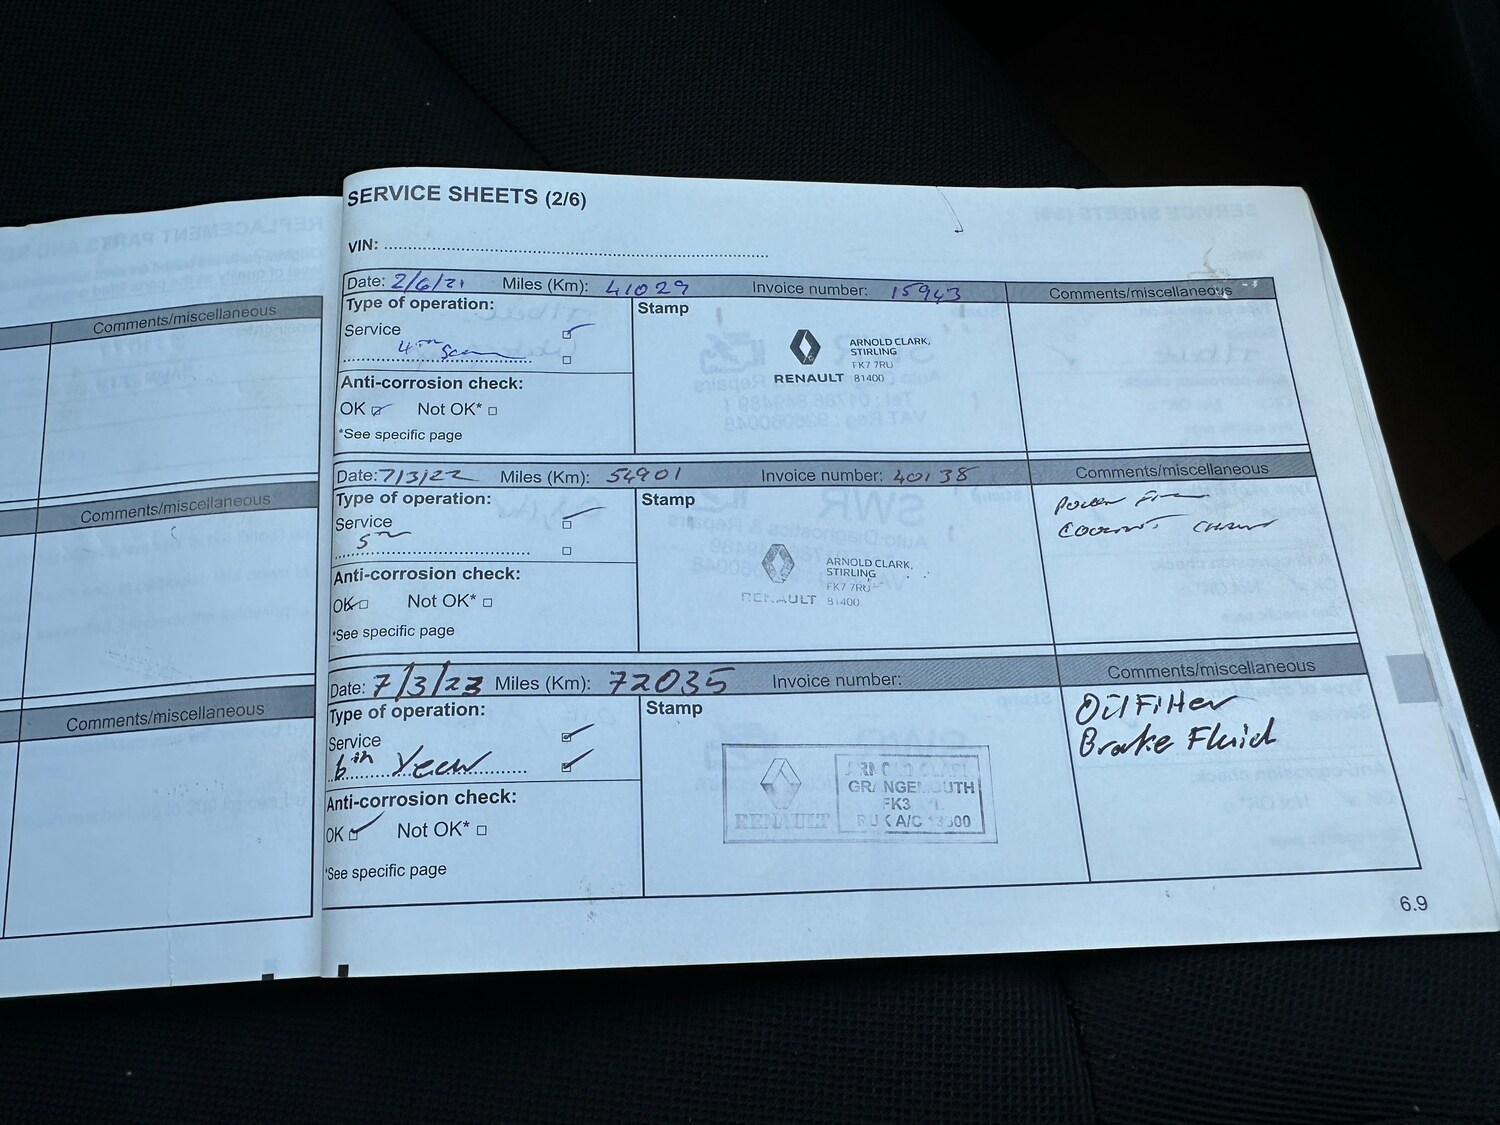 SERVICE SHEETS (2/6)
VIN:
Date: 2/6/21 Miles (Km): 41029 Invoice number: 15943 Comments/miscellaneous
Type of operation:
Service
4th
Anti-corrosion check:
OK Not OK*
*See specific page
Stamp
RENAULT
ARNOLD CLARK,
STIRLING
FK7 7RU
81400
Date: 7/3/22 Miles (Km): 54901 Invoice number: 40138 Comments/miscellaneous
Type of operation:
Service
5th
Anti-corrosion check:
OK Not OK*
*See specific page
Stamp
RENAULT
ARNOLD CLARK,
STIRLING
FK7 7RU
81400
Date: 7/3/23 Miles (Km): 72035 Invoice number: Comments/miscellaneous
Type of operation:
Service
6th Year
Anti-corrosion check:
OK Not OK*
*See specific page
Stamp
RENAULT
ARNOLD CLARK
GRANGEMOUTH
FK3
RUK A/C 13500
Oil Filter
Brake Fluid
6.9
Comments/miscellaneous
Comments/miscellaneous
Comments/miscellaneous